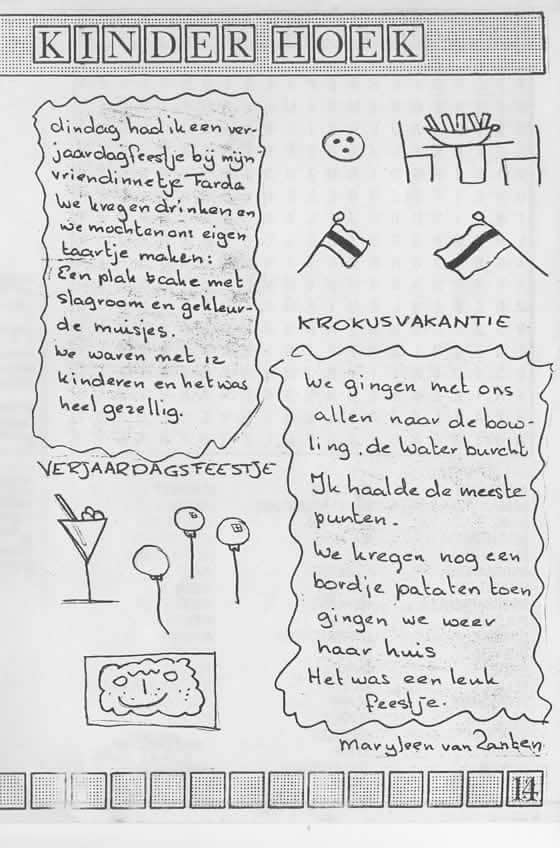 KINDER HOEK
dindag had ik een ver-
jaardagfeestje bij mijn
vriendinnetje Farda
We kregen drinken en
we mochten ons eigen
taartje maken:
Een plak cake met
slagroom en gekleur-
de muisjes.
We waren met 12
kinderen en het was
heel gezellig.
VERJAARDAGSFEESTJE
KROKUSVAKANTIE
We gingen met ons
allen naar de bow-
ling . de Waterburcht
Ik haalde de meeste
punten.
We kregen nog een
bordje pataten toen
gingen we weer
naar huis
Het was een leuk
feestje.
Maryleen van Zanten
14